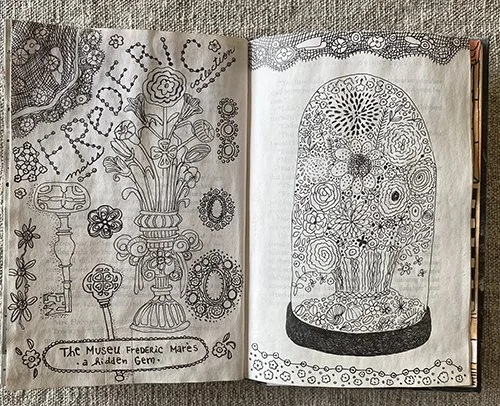 FREDERIC
marès
collection
The Museu FREDERIC MARÈS
a hidden Gem.